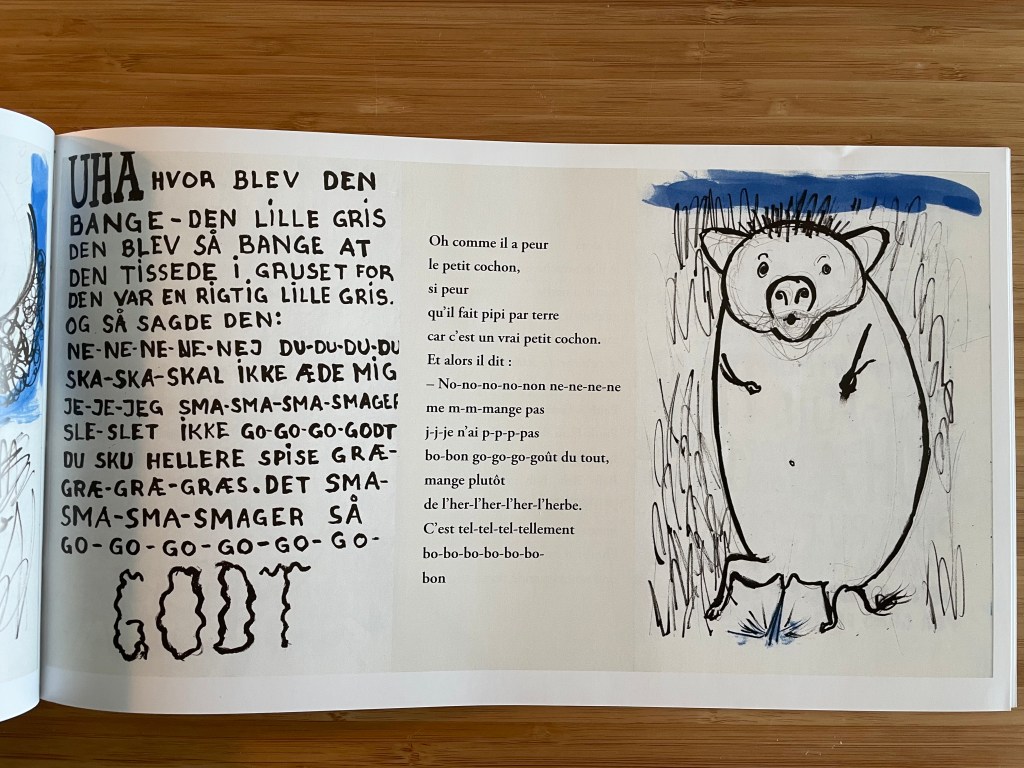 UHA HVOR BLEV DEN
BANGE-DEN LILLE GRIS
DEN BLEV SÅ BANGE AT
DEN TISSEDE i GRUSET FOR
DEN VAR EN RIGTIG LILLE GRIS.
OG SÅ SAGDE DEN:
NE-NE-NE-NE-NEJ DU-DU-DU-DU
SKA-SKA-SKAL iKKE ÆDE MIG
JE-JE-JEG SMA-SMA-SMA-SMAGER
SLE-SLET iKKE GO-GO-GO-GODT
DU SKU HELLERE SPISE GRÆ-
GRÆ-GRÆ-GRÆS. DET SMA-
SMA-SMA-SMAGER SÅ
GO-GO-GO-GO-GO-GO-
GODT
Oh comme il a peur
le petit cochon,
si peur
qu'il fait pipi par terre
car c'est un vrai petit cochon.
Et alors il dit :
– No-no-no-no-non ne-ne-ne-ne
me m-m-mange pas
j-j-je n'ai p-p-p-pas
bo-bon go-go-go-goût du tout,
mange plutôt
de l'her-l'her-l'her-l'herbe.
C'est tel-tel-tel-tellement
bo-bo-bo-bo-bo-bo-
bon